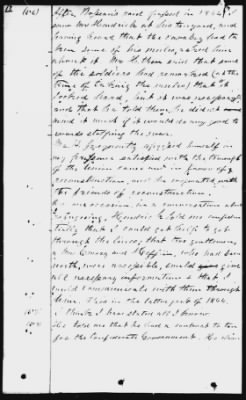 (106)
After Pope's raid passed in 1864 I
saw Mr Hendrick at his tan yard, and
having heard that the cavalry had ta-
ken some of his mules, asked him
about it. Mr H. then said that some
of the soldiers had remarked (at the
time of taking the mules) that it
looked hard but it was necessary,
and that he told them he did not
mind it much if it would do any good to-
wards stopping the war.
Mr H frequently expressed himself in
my presence satisfied with the triumph
of the Union cause and in favor of
reconstruction, and he cooperated with
the friends of reconstruction.
On one occasion, in a conversation about
Hendrick told me confiden-
tially that I could get help to get
through the lines, that two gentlemen,
a Mr and , who had been
north, were accessible, could give
all necessary information &
could communicate with them through
him. This in the latter part of 1864.
I think I have stated all I know.
He told me that he had a contract to tan
for the Confederate Government. He